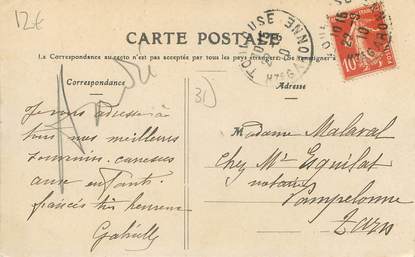 12€
CARTE POSTALE
La Correspondance au recto n'est pas acceptée par tous les pays étrangers. (Se renseigner à
Correspondance
Adresse
31
TOULOUSE
Hte GARONNE
10c
Je vous adresse à
tous mes meilleurs
caresses
aux enfants.
fiancés très heureux
Gabrielle
Madame Malaval
chez Mr Esquilat
notaire
Pampelonne
Tarn